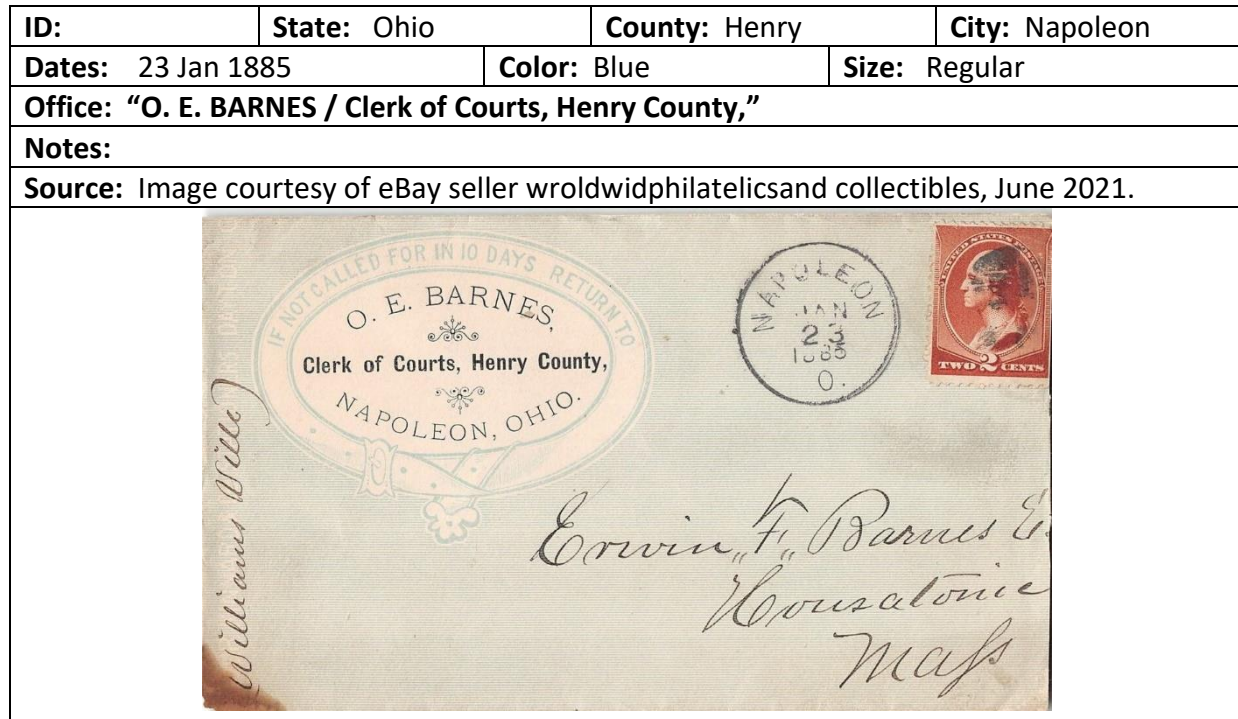 ID: State: Ohio County: Henry City: Napoleon
Dates: 23 Jan 1885 Color: Blue Size: Regular
Office: “O. E. BARNES / Clerk of Courts, Henry County,”
Notes:
Source: Image courtesy of eBay seller wroldwidphilatelicsand collectibles, June 2021.
IF NOT CALLED FOR IN 10 DAYS RETURN TO
O. E. BARNES,
Clerk of Courts, Henry County,
NAPOLEON, OHIO.
NAPOLEON
JAN
23
O.
UNITED STATES POSTAGE
TWO 2 CENTS
(Williams Ville)
Erwin „F„ Barnes E
Housatonic
Mass